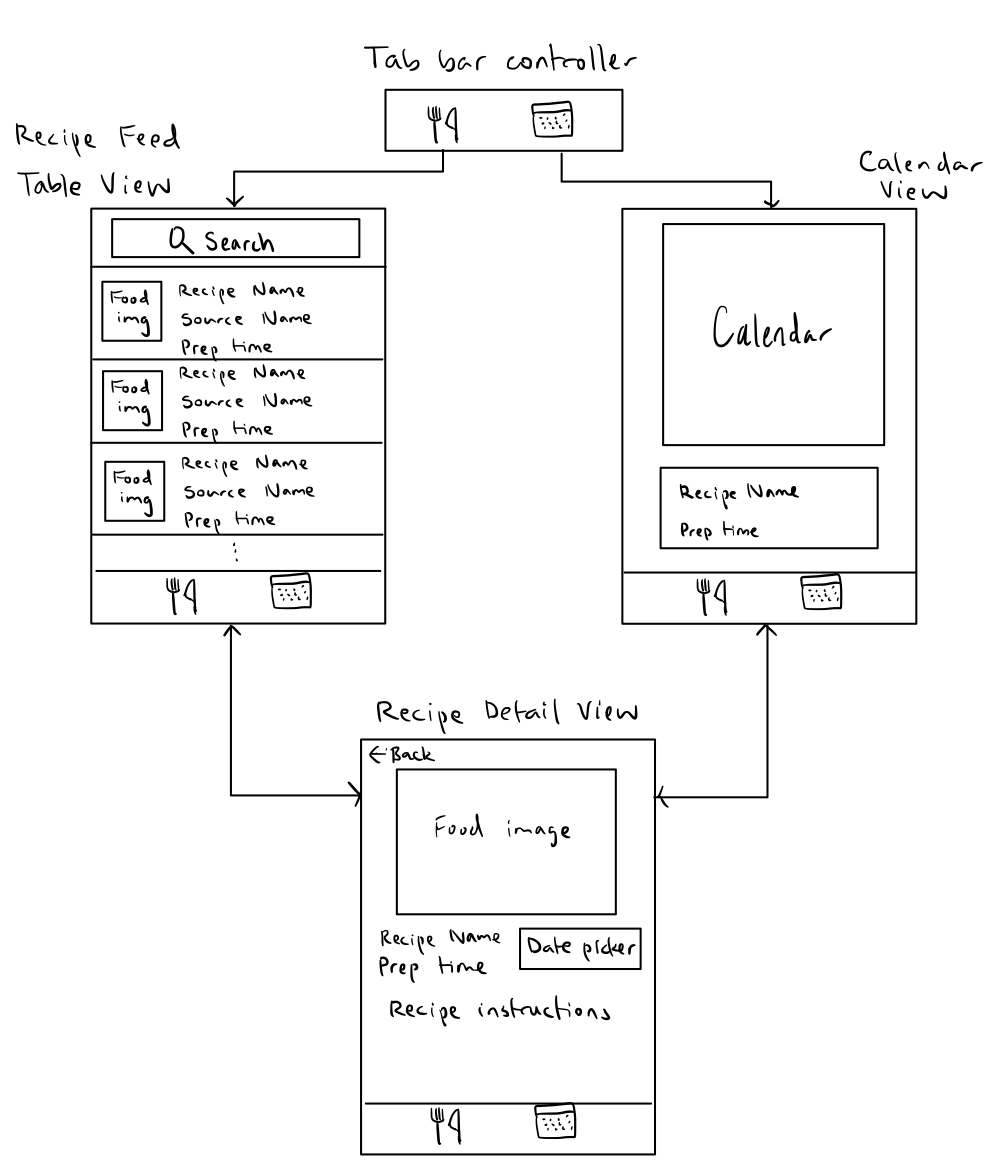 Tab bar controller
Recipe Feed
Table View
Calendar
View
Search
Food
img
Recipe Name
Source Name
Prep time
Food
img
Recipe Name
Source Name
Prep time
Food
img
Recipe Name
Source Name
Prep time
Calendar
Recipe Name
Prep time
Recipe Detail View
←Back
Food image
Recipe Name
Prep time
Date picker
Recipe instructions